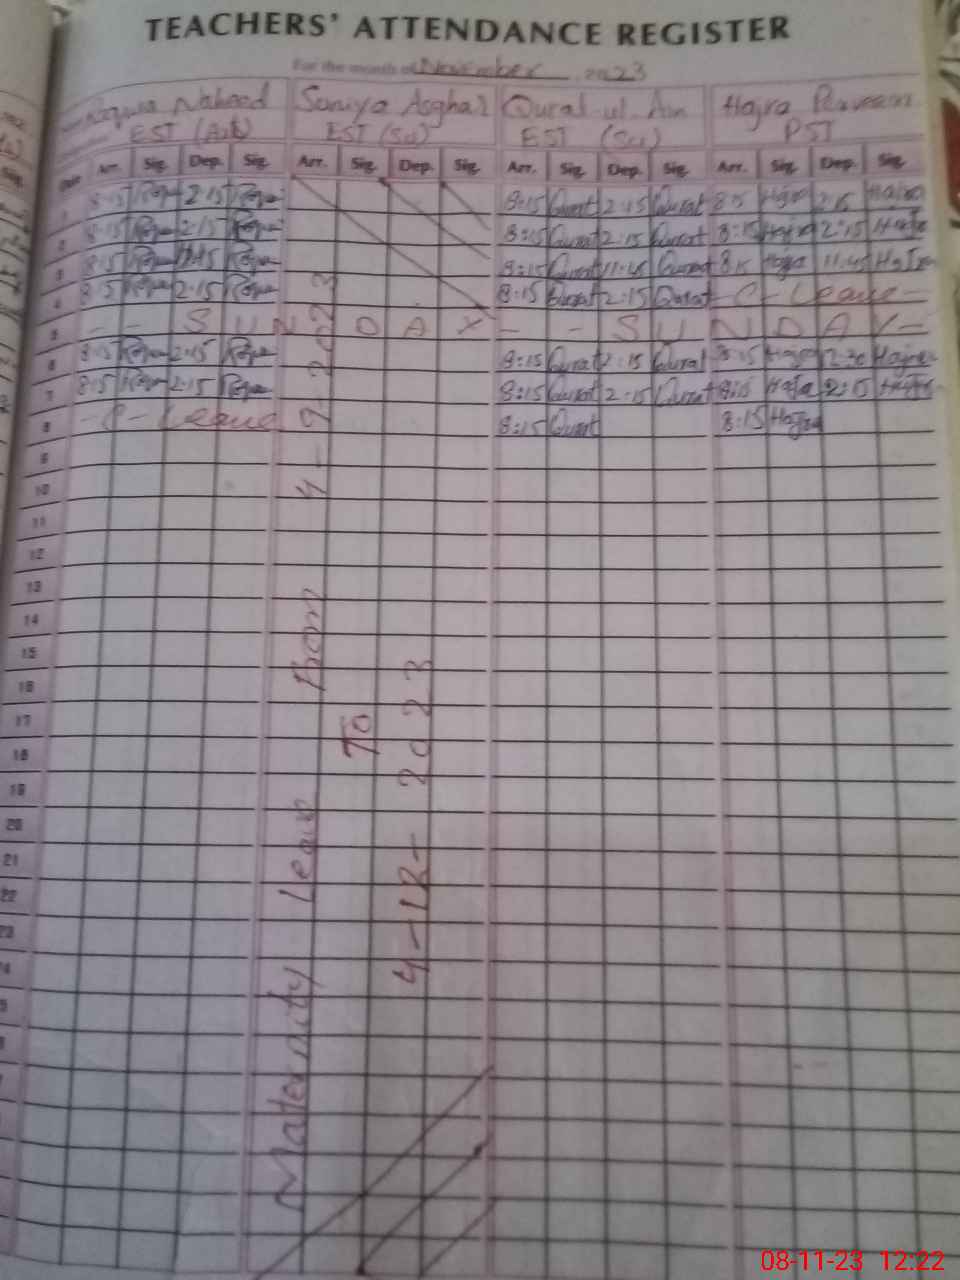 TEACHERS' ATTENDANCE REGISTER
For the month of November 2023
Naheed Saniya Asghar Qurat ul Ain Hajra Parveen
EST (Art) EST (Sci) EST (Sci) PST
Date Arr. Sig. Dep. Sig. Arr. Sig. Dep. Sig. Arr. Sig. Dep. Sig. Arr. Sig. Dep. Sig.
1 8:15 2:15 8:15 Qurat 2:15 Qurat 8:15 Hajra 2:15 Hajra
2 8:15 2:15 8:15 Qurat 2:15 Qurat 8:15 Hajra 2:15 Hajra
3 8:15 11:45 8:15 Qurat 11:45 Qurat 8:15 Hajra 11:45 Hajra
4 8:15 2:15 8:15 Qurat 2:15 Qurat - C - Leave -
5 - - S U N D A Y - - S U N D A Y -
6 8:15 2:15 8:15 Qurat 2:15 Qurat 8:15 Hajra 2:30 Hajra
7 8:15 2:15 8:15 Qurat 2:15 Qurat 8:15 Hajra 2:15 Hajra
8 - C - Leave 8:15 Qurat 8:15 Hajra
9
10
11
12
13
14
15
16
17
18
19
20
21
22
23
Maternity Leave From 4-9-2023
To
4-12-2023
08-11-23 12:22